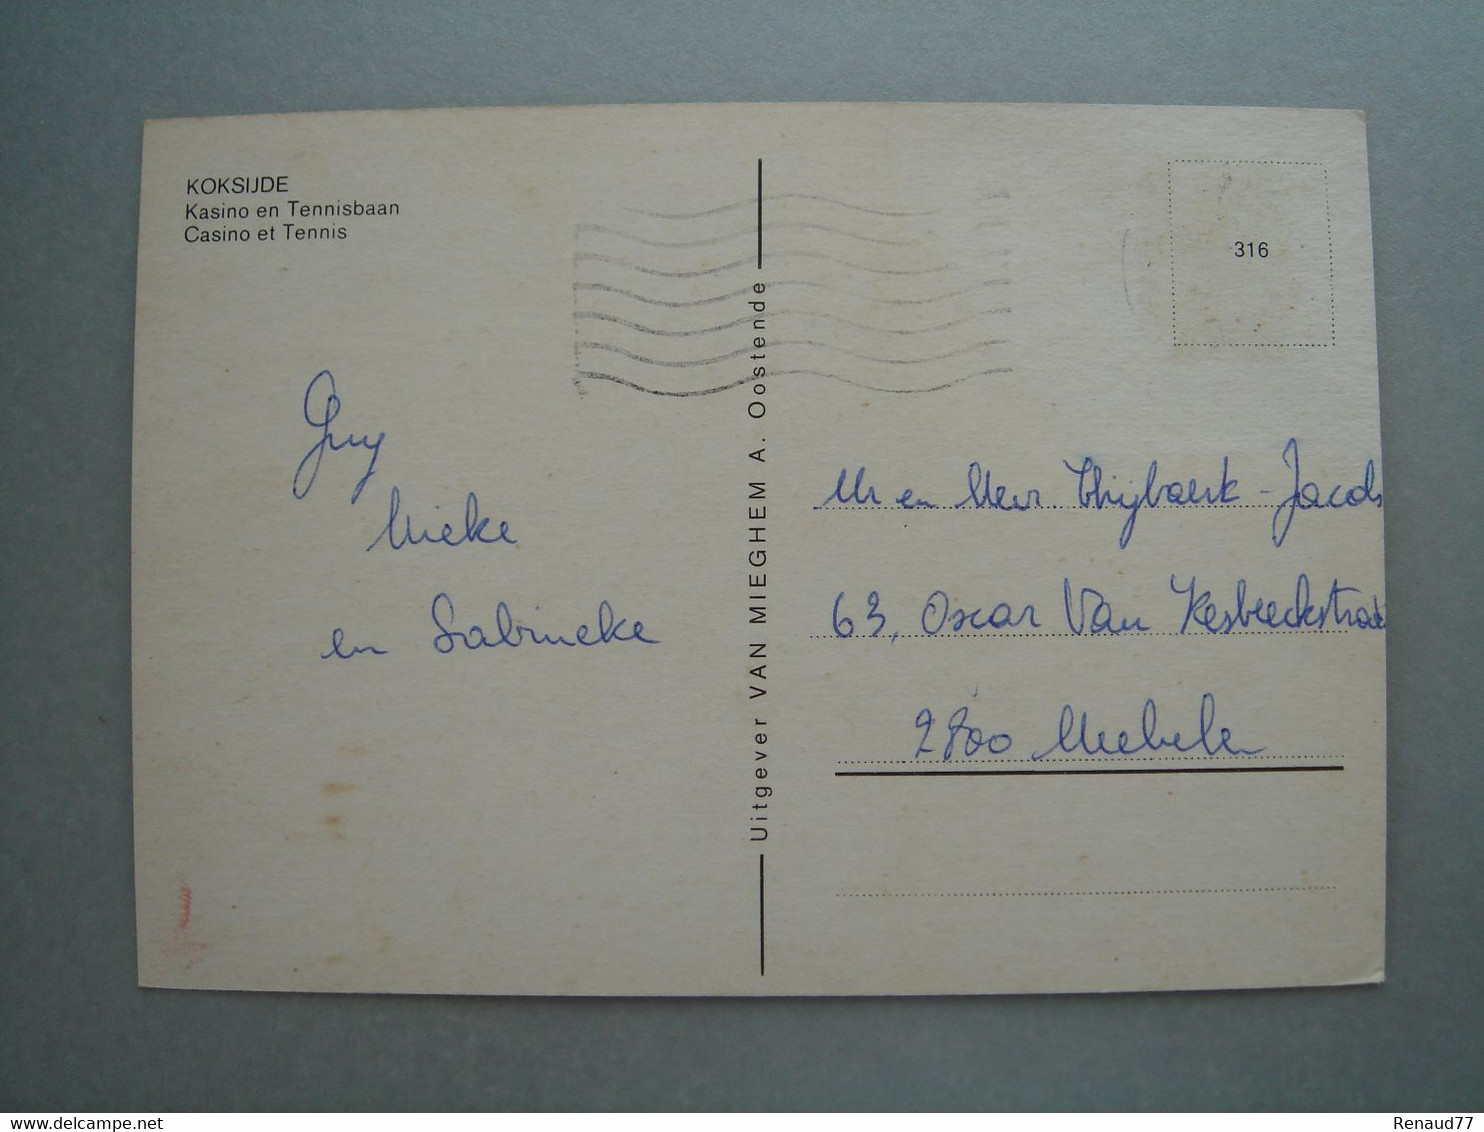 KOKSIJDE
Kasino en Tennisbaan
Casino et Tennis
316
Uitgever VAN MIEGHEM A. Oostende
Guy
Mieke
en Sabineke
Mr en Mevr. Thijbaert - Jacobs
63, Oscar Van Kesbeeckstraat
2800 Mechelen
delcampe.net
Renaud77